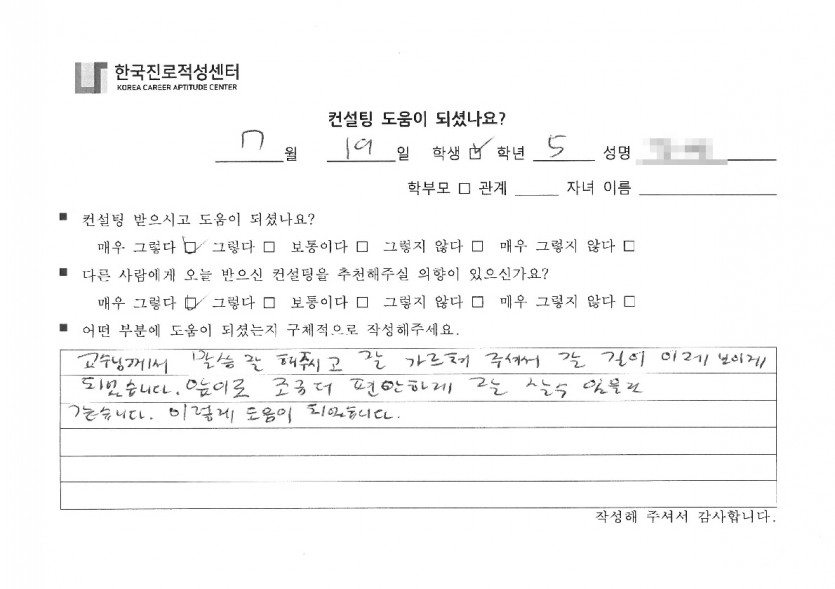 한국진로적성센터
KOREA CAREER APTITUDE CENTER
컨설팅 도움이 되셨나요?
7 월 19 일 학생 ☑ 학년 5 성명
학부모 □ 관계 ______ 자녀 이름
■ 컨설팅 받으시고 도움이 되셨나요?
매우 그렇다 ☑ 그렇다 □ 보통이다 □ 그렇지 않다 □ 매우 그렇지 않다 □
■ 다른 사람에게 오늘 받으신 컨설팅을 추천해주실 의향이 있으신가요?
매우 그렇다 ☑ 그렇다 □ 보통이다 □ 그렇지 않다 □ 매우 그렇지 않다 □
■ 어떤 부분에 도움이 되셨는지 구체적으로 작성해주세요.
교수님께서 말씀 잘 해주시고 잘 가르쳐 주셔서 갈 길이 이제 보이게
되었습니다. 앞이로 조금더 편안하게 갈 살수
같습니다. 이렇게 도움이 되었습니다.
작성해 주셔서 감사합니다.